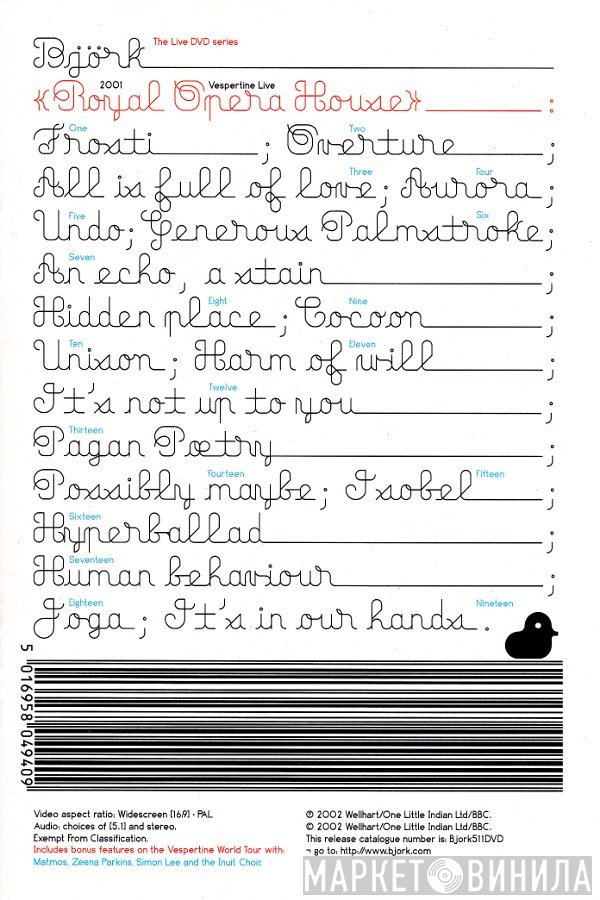 Björk The Live DVD series
2001 Vespertine Live
«Royal Opera House» :
One Two
Frosti ; Overture ;
Three Four
All is full of love; Aurora ;
Five Six
Undo; Generous Palmstroke;
Seven
An echo, a stain ;
Eight Nine
Hidden place ; Cocoon ;
Ten Eleven
Unison ; Harm of will ;
Twelve
It's not up to you ;
Thirteen
Pagan Poetry ;
Fourteen Fifteen
Possibly maybe; Isobel ;
Sixteen
Hyperballad ;
Seventeen
Human behaviour ;
Eighteen Nineteen
Joga ; It's in our hands .
5 016958 049409
Video aspect ratio: Widescreen [16:9] · PAL
Audio: choices of [5.1] and stereo.
Exempt From Classification.
Includes bonus features on the Vespertine World Tour with:
Matmos, Zeena Parkins, Simon Lee and the Inuit Choir
℗ 2002 Wellhart/One Little Indian Ltd/BBC.
© 2002 Wellhart/One Little Indian Ltd/BBC.
This release catalogue number is: Bjork511DVD
¬ go to: http://www.bjork.com
МАРКЕТ ВИНИЛА